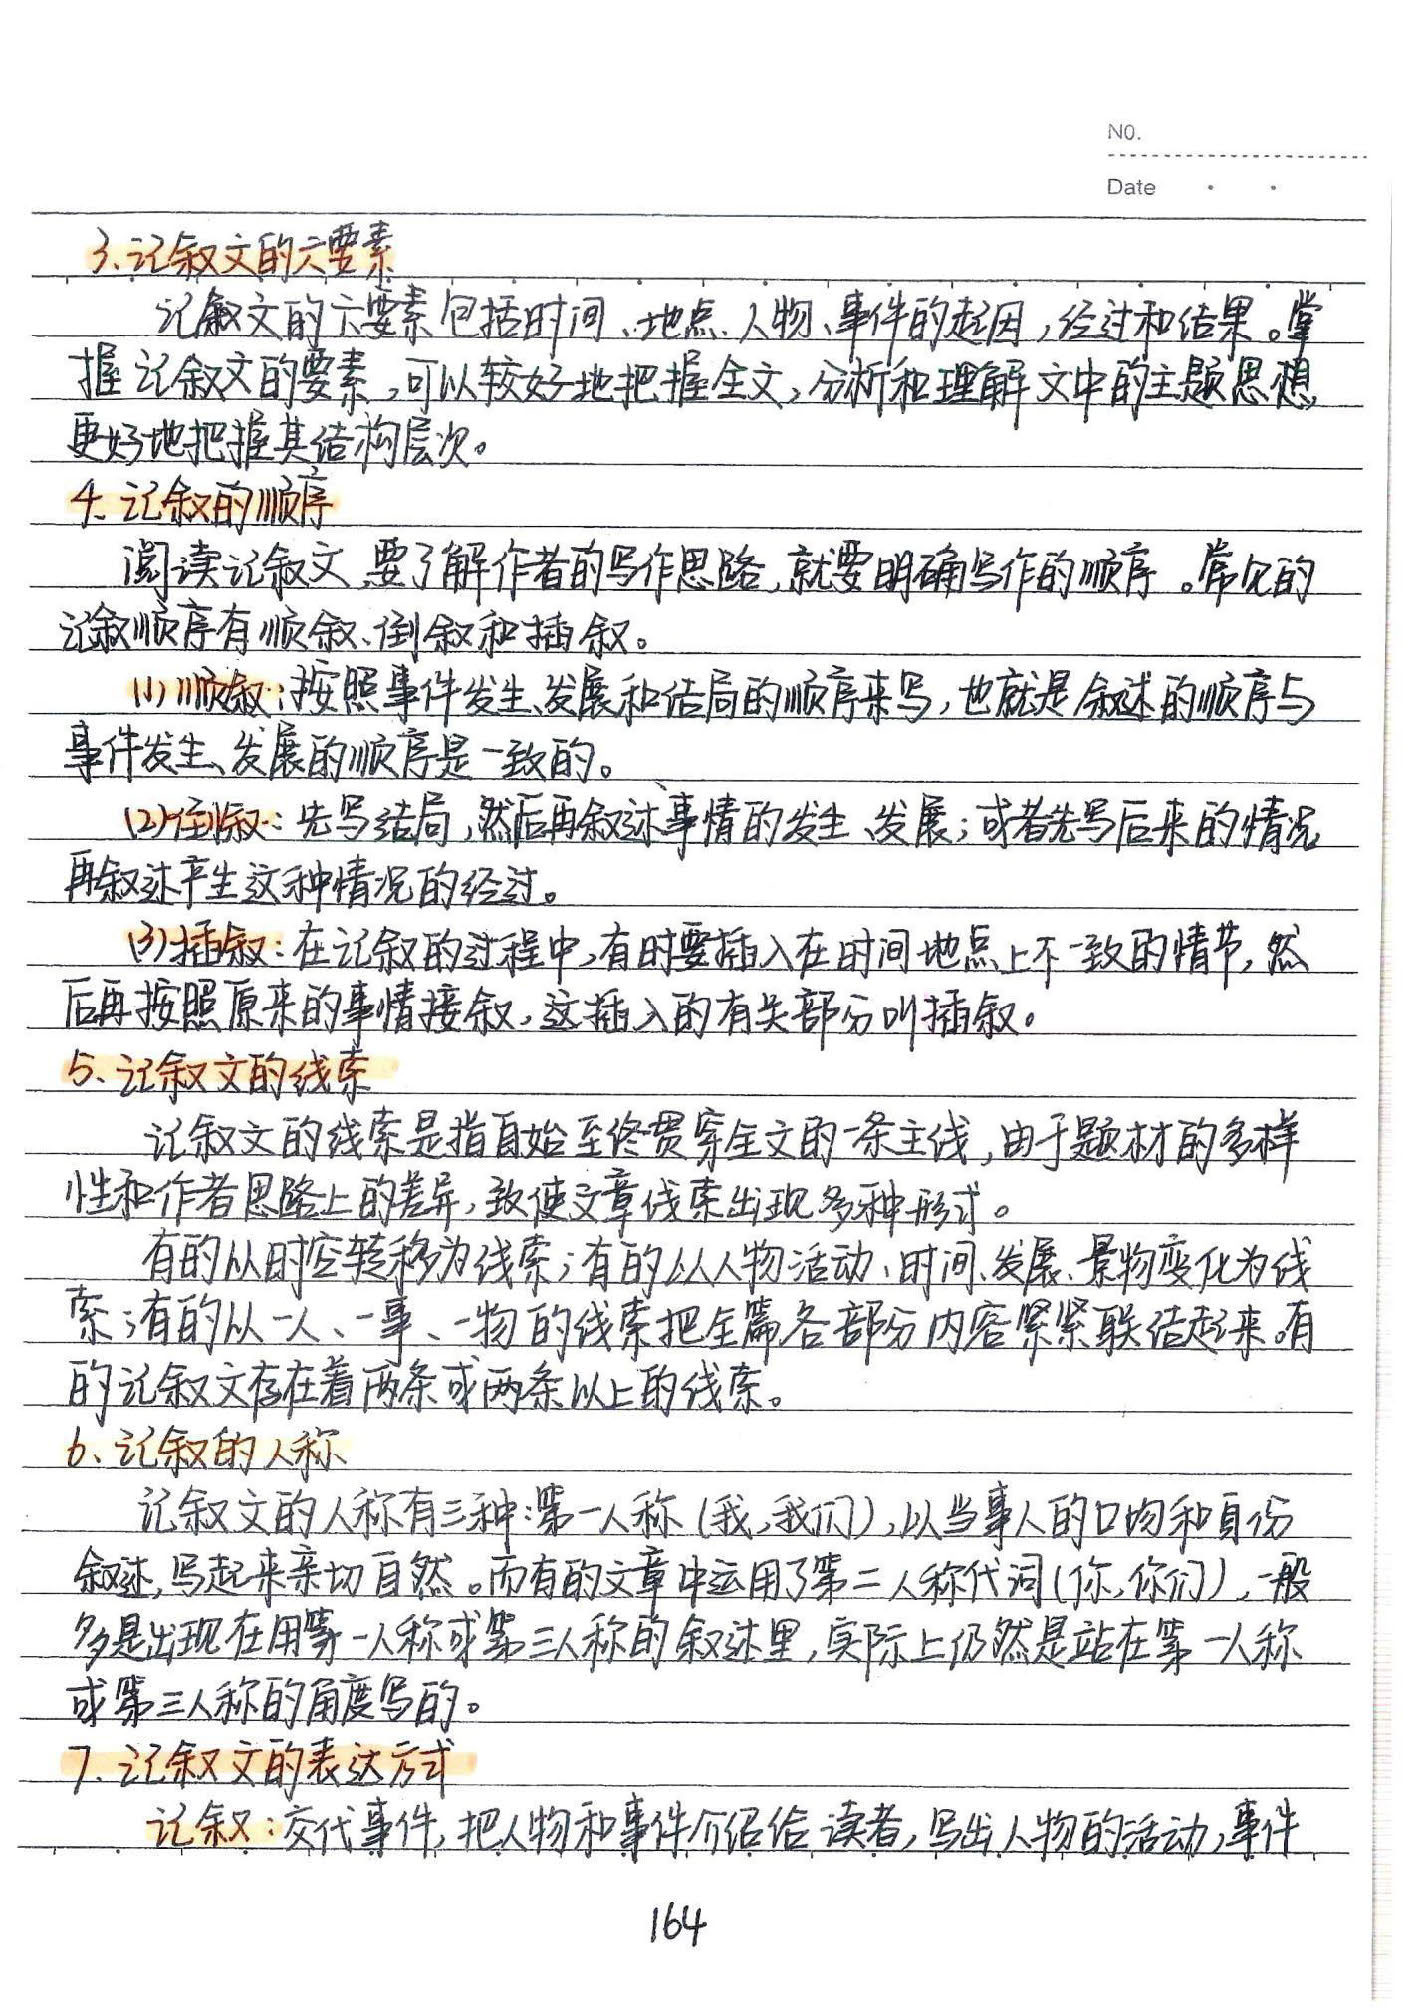 NO.
Date
3.记叙文的六要素
记叙文的六要素包括时间、地点、人物、事件的起因,经过和结果。掌
握记叙文的要素,可以较好地把握全文,分析和理解文中的主题思想,
更好地把握其结构层次。
4.记叙的顺序
阅读记叙文,要了解作者的写作思路,就要明确写作的顺序。常见的
记叙顺序有顺叙、倒叙和插叙。
(1)顺叙:按照事件发生、发展和结局的顺序来写,也就是叙述的顺序与
事件发生、发展的顺序是一致的。
(2)倒叙:先写结局,然后再叙述事情的发生、发展;或者先写后来的情况
再叙述产生这种情况的经过。
(3)插叙:在记叙的过程中,有时要插入在时间地点上不一致的情节,然
后再按照原来的事情接叙,这插入的有关部分叫插叙。
5、记叙文的线索
记叙文的线索是指自始至终贯穿全文的一条主线,由于题材的多样
性和作者思路上的差异,致使文章线索出现多种形式。
有的以时空转移为线索;有的以人物活动、时间、发展、景物变化为线
索;有的以一人、一事、一物的线索把全篇各部分内容紧紧联结起来。有
的记叙文存在着两条或两条以上的线索。
6、记叙的人称
记叙文的人称有三种:第一人称(我,我们),以当事人的口吻和身份
叙述,写起来亲切自然。而有的文章中运用了第二人称代词(你,你们),一般
多是出现在用第一人称或第三人称的叙述里,实际上仍然是站在第一人称
或第三人称的角度写的。
7、记叙文的表达方式
记叙:交代事件,把人物和事件介绍给读者,写出人物的活动,事件
164